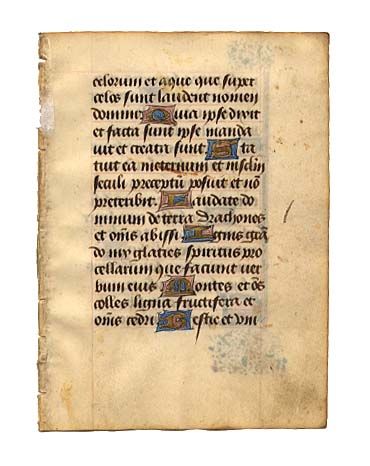 celorum et aque que super
celos sunt laudent nomen
domini Quia ipse dixit
et facta sunt ipse manda
vit et creata sunt Sta
tuit ea in eternum et in sclm
seculi preceptū posuit et nō
preteribit Laudate do
minum de terra drachones
et om̄s abissi Ignis grā
do nix glacies spiritus pro
cellarum que faciunt ver
bum eius Montes et oēs
colles ligna fructifera et
om̄s cedri Bestie et uni